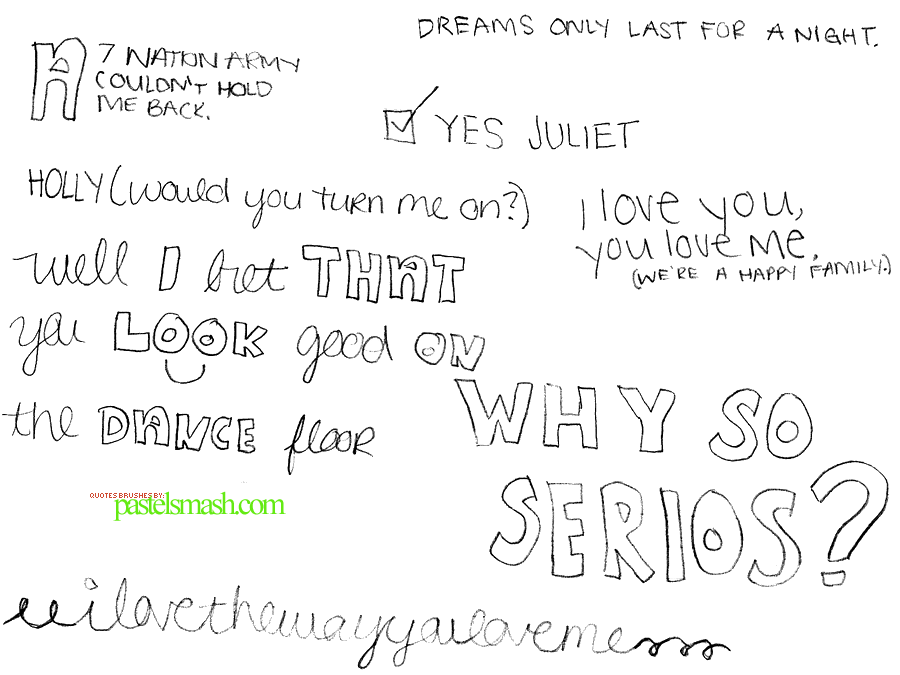 DREAMS ONLY LAST FOR A NIGHT.
A 7 NATION ARMY
COULDN'T HOLD
ME BACK.
YES JULIET
HOLLY (would you turn me on?)
I love you,
you love me.
(WE'RE A HAPPY FAMILY.)
well I bet THAT
you LOOK good ON
the DANCE floor
WHY SO
SERIOS?
QUOTES BRUSHES BY:
pastelsmash.com
ilovethewayyouloveme